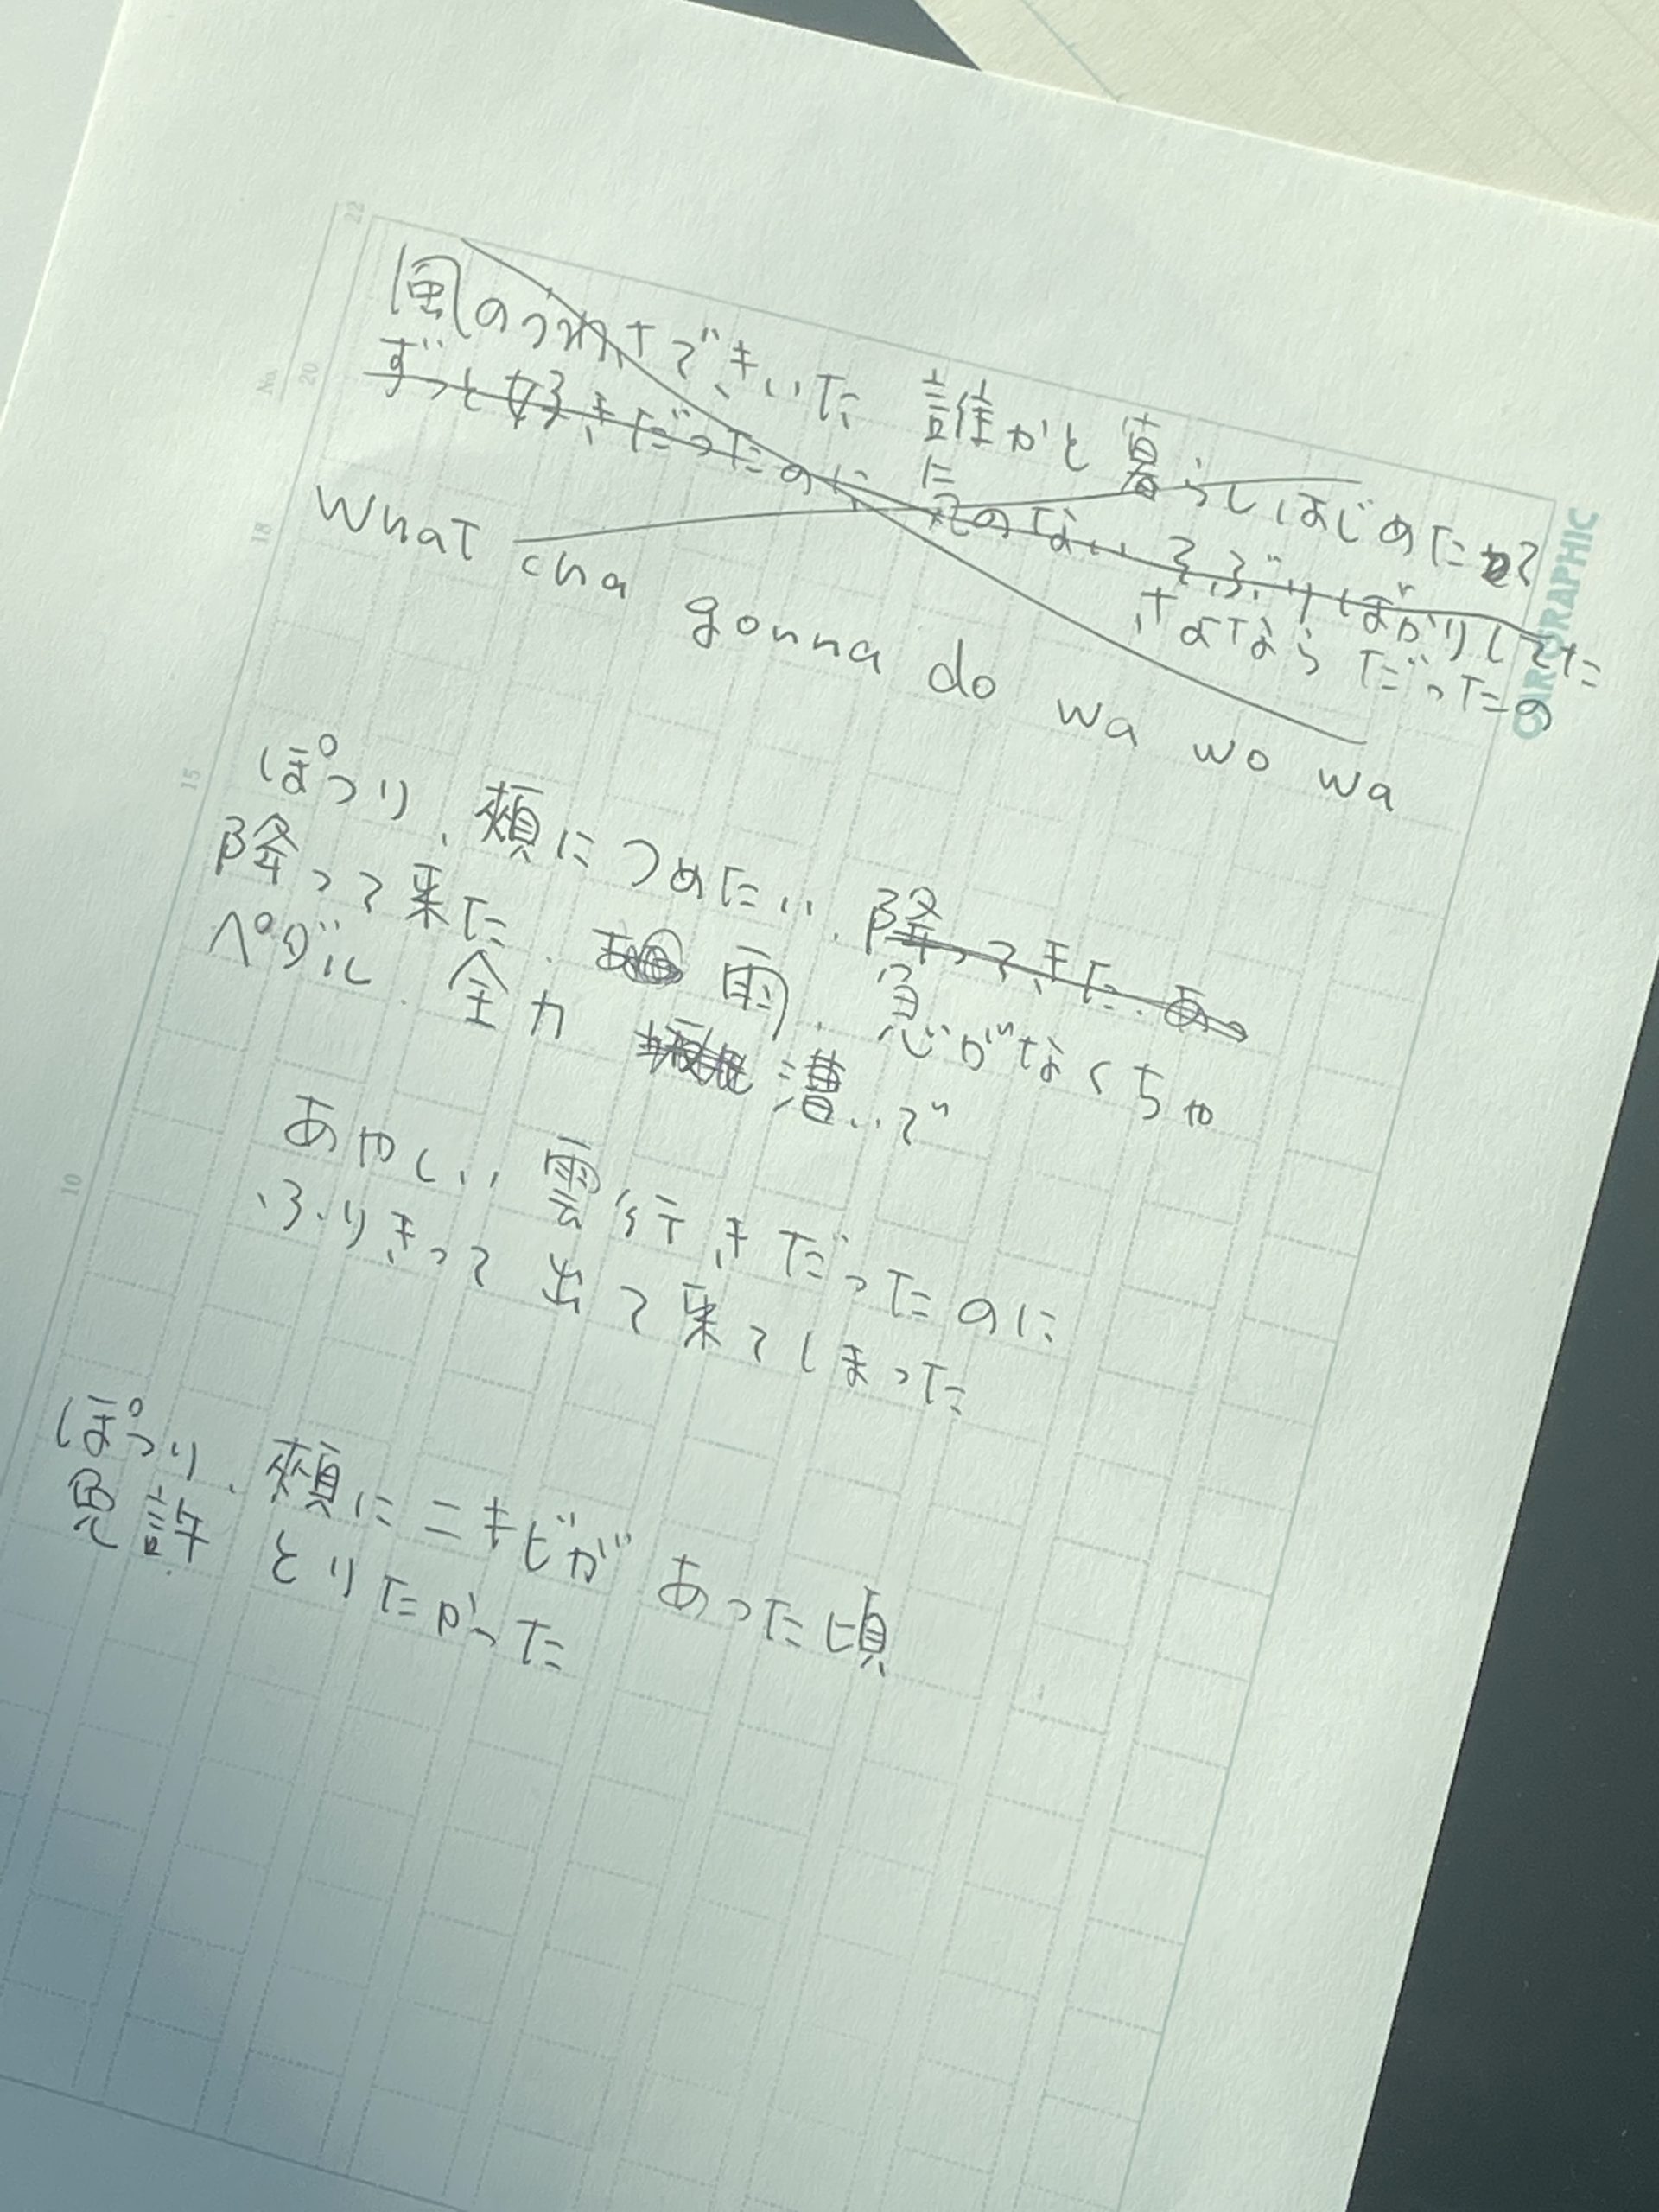 22
20
No.
18
15
10
CAR GRAPHIC
風のうわさできいた 誰かと暮らしはじめたって
ずっと好きだったのに 気のないそぶりばかりしてた
さよならだったの
What cha gonna do wa wo wa
ぽつり、頬につめたい、降ってきた、あっ
降って来た、雨、急がなくちゃ
ペダル 全力 漕いで
あやしい雲行きだったのに
ふりきって出て来てしまった
ぽつり、頬にニキビがあった頃
免許とりたかった